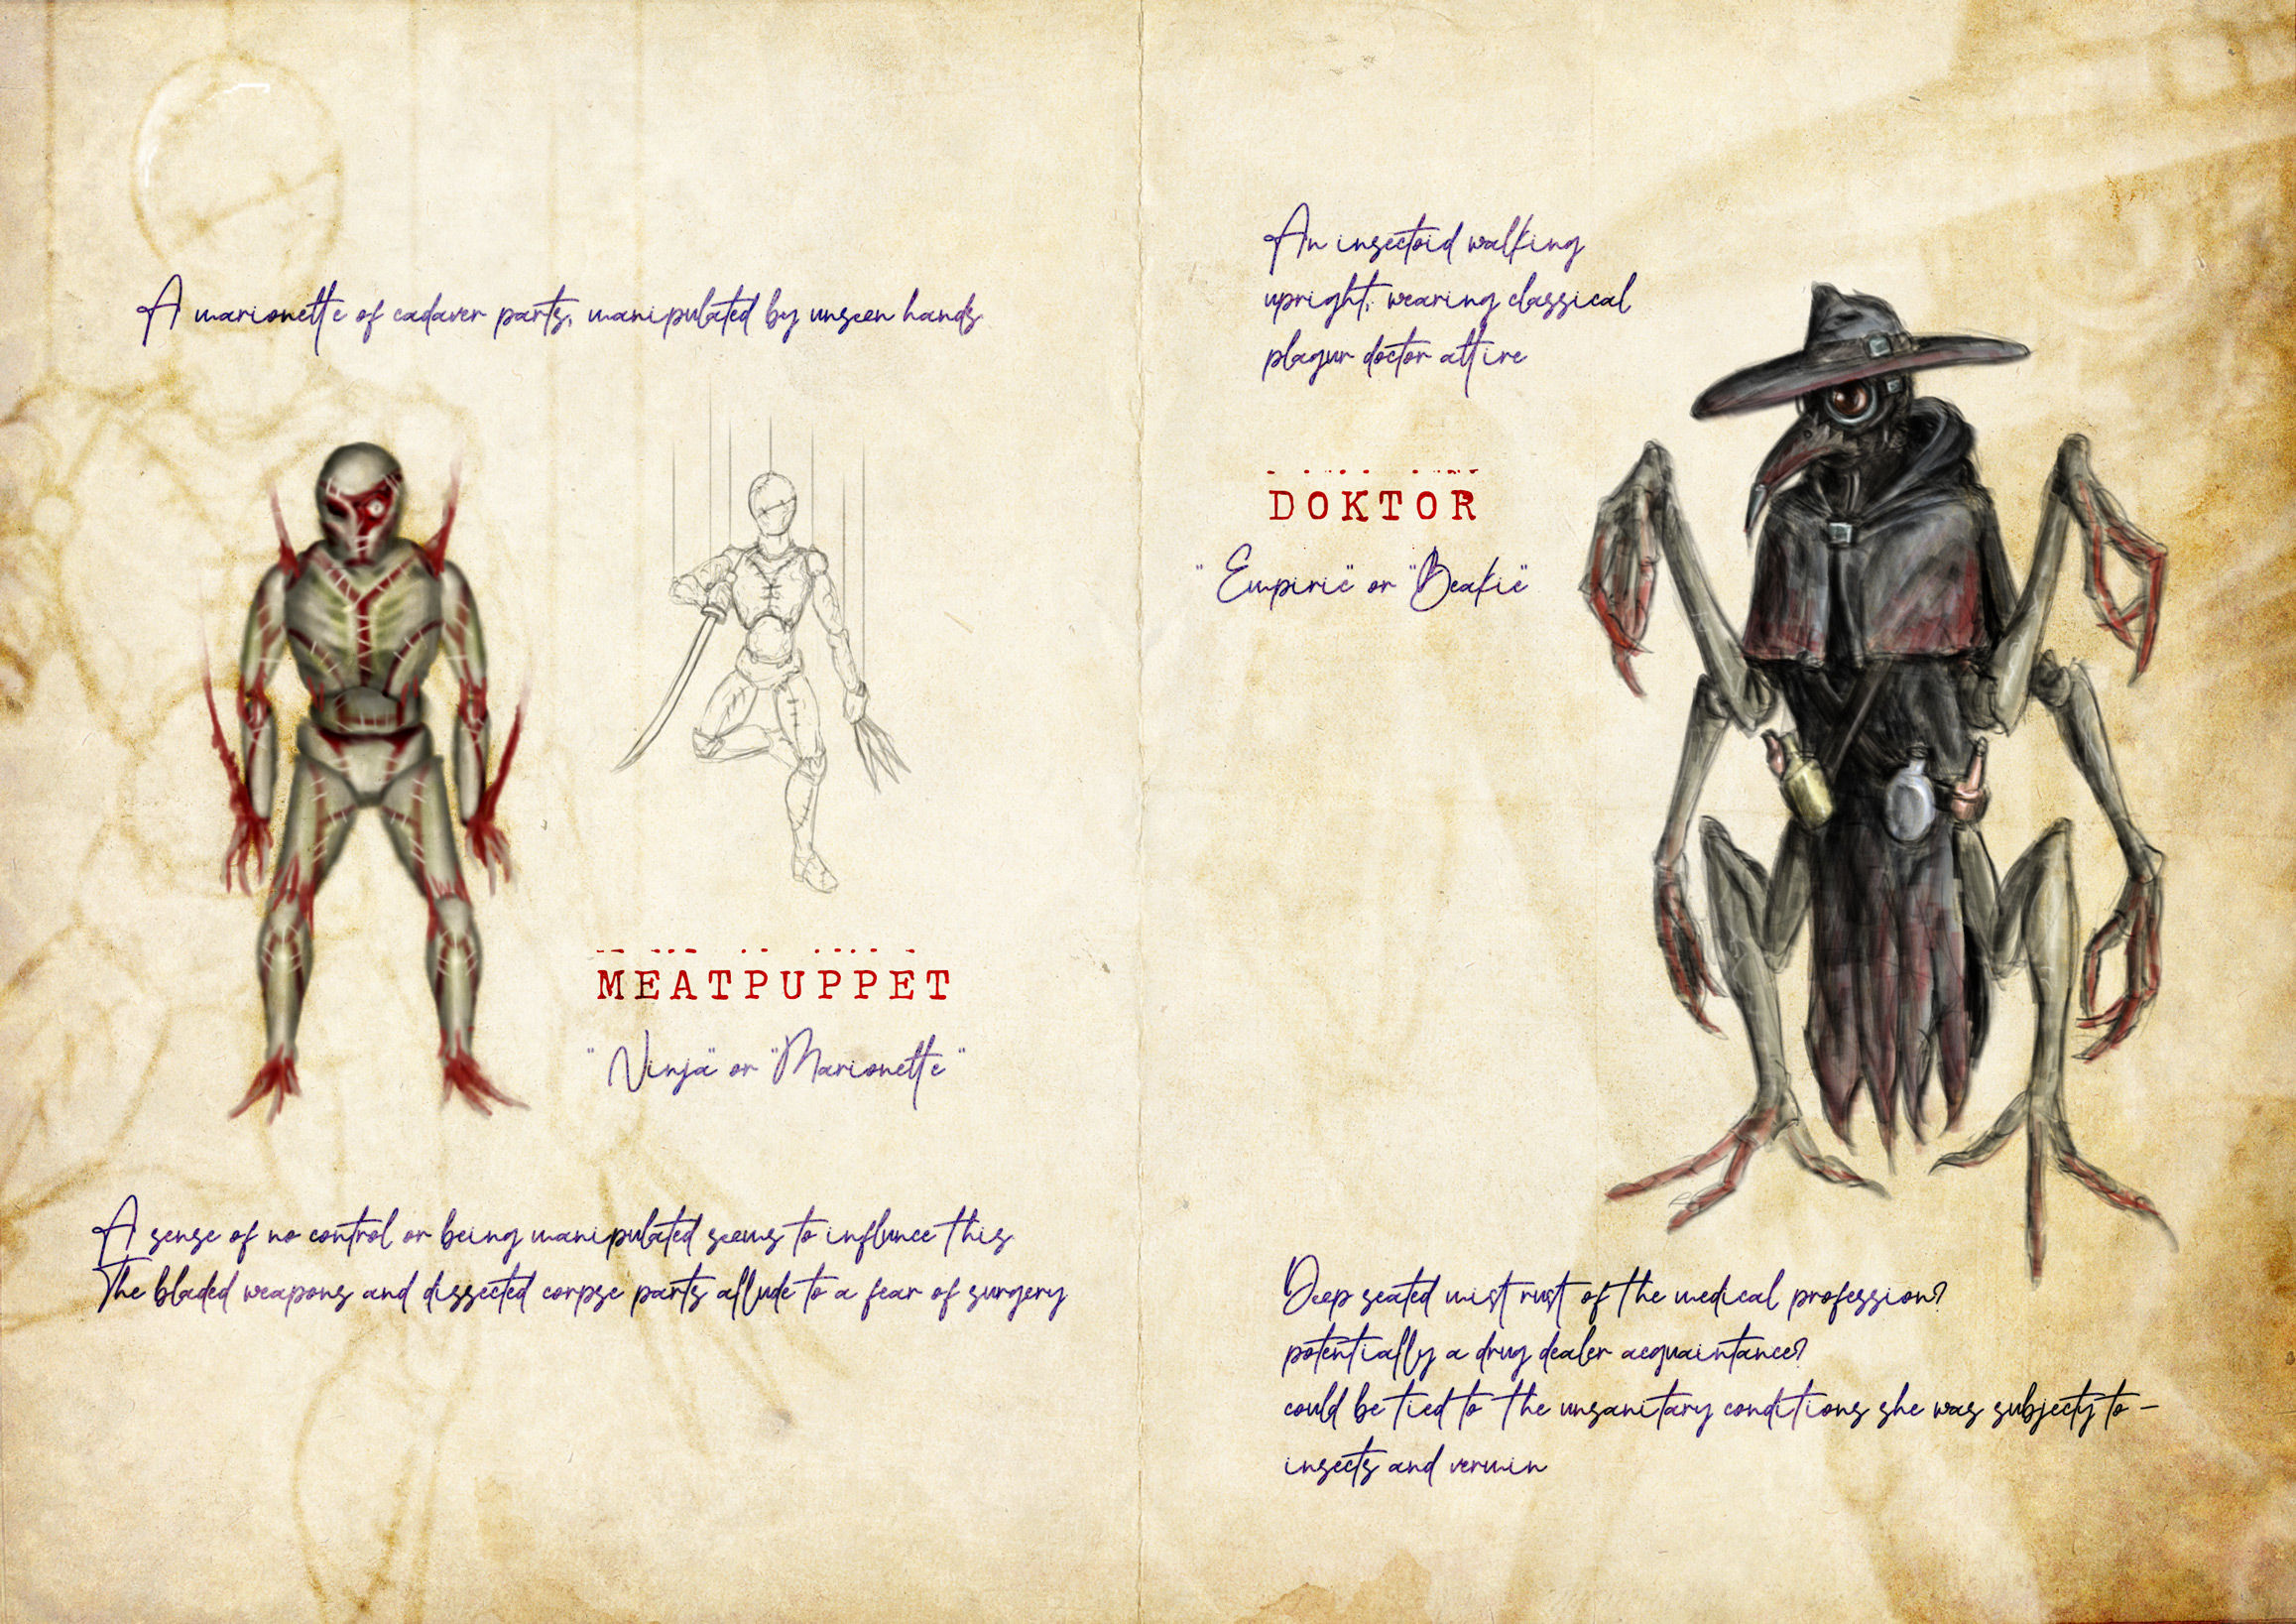 A marionette of cadaver parts, manipulated by unseen hands
MEATPUPPET
"Ninja" or "Marionette"
A sense of no control or being manipulated seems to influnce this
The bladed weapons and dissected corpse parts allude to a fear of surgery
An insectoid walking
upright, wearing classical
plagur doctor attire
DOKTOR
"Empiric" or "Beakie"
Deep seated mistrust of the medical profession?
potentially a drug dealer acquaintance?
could be tied to the unsanitary conditions she was subjecty to -
insects and vermin